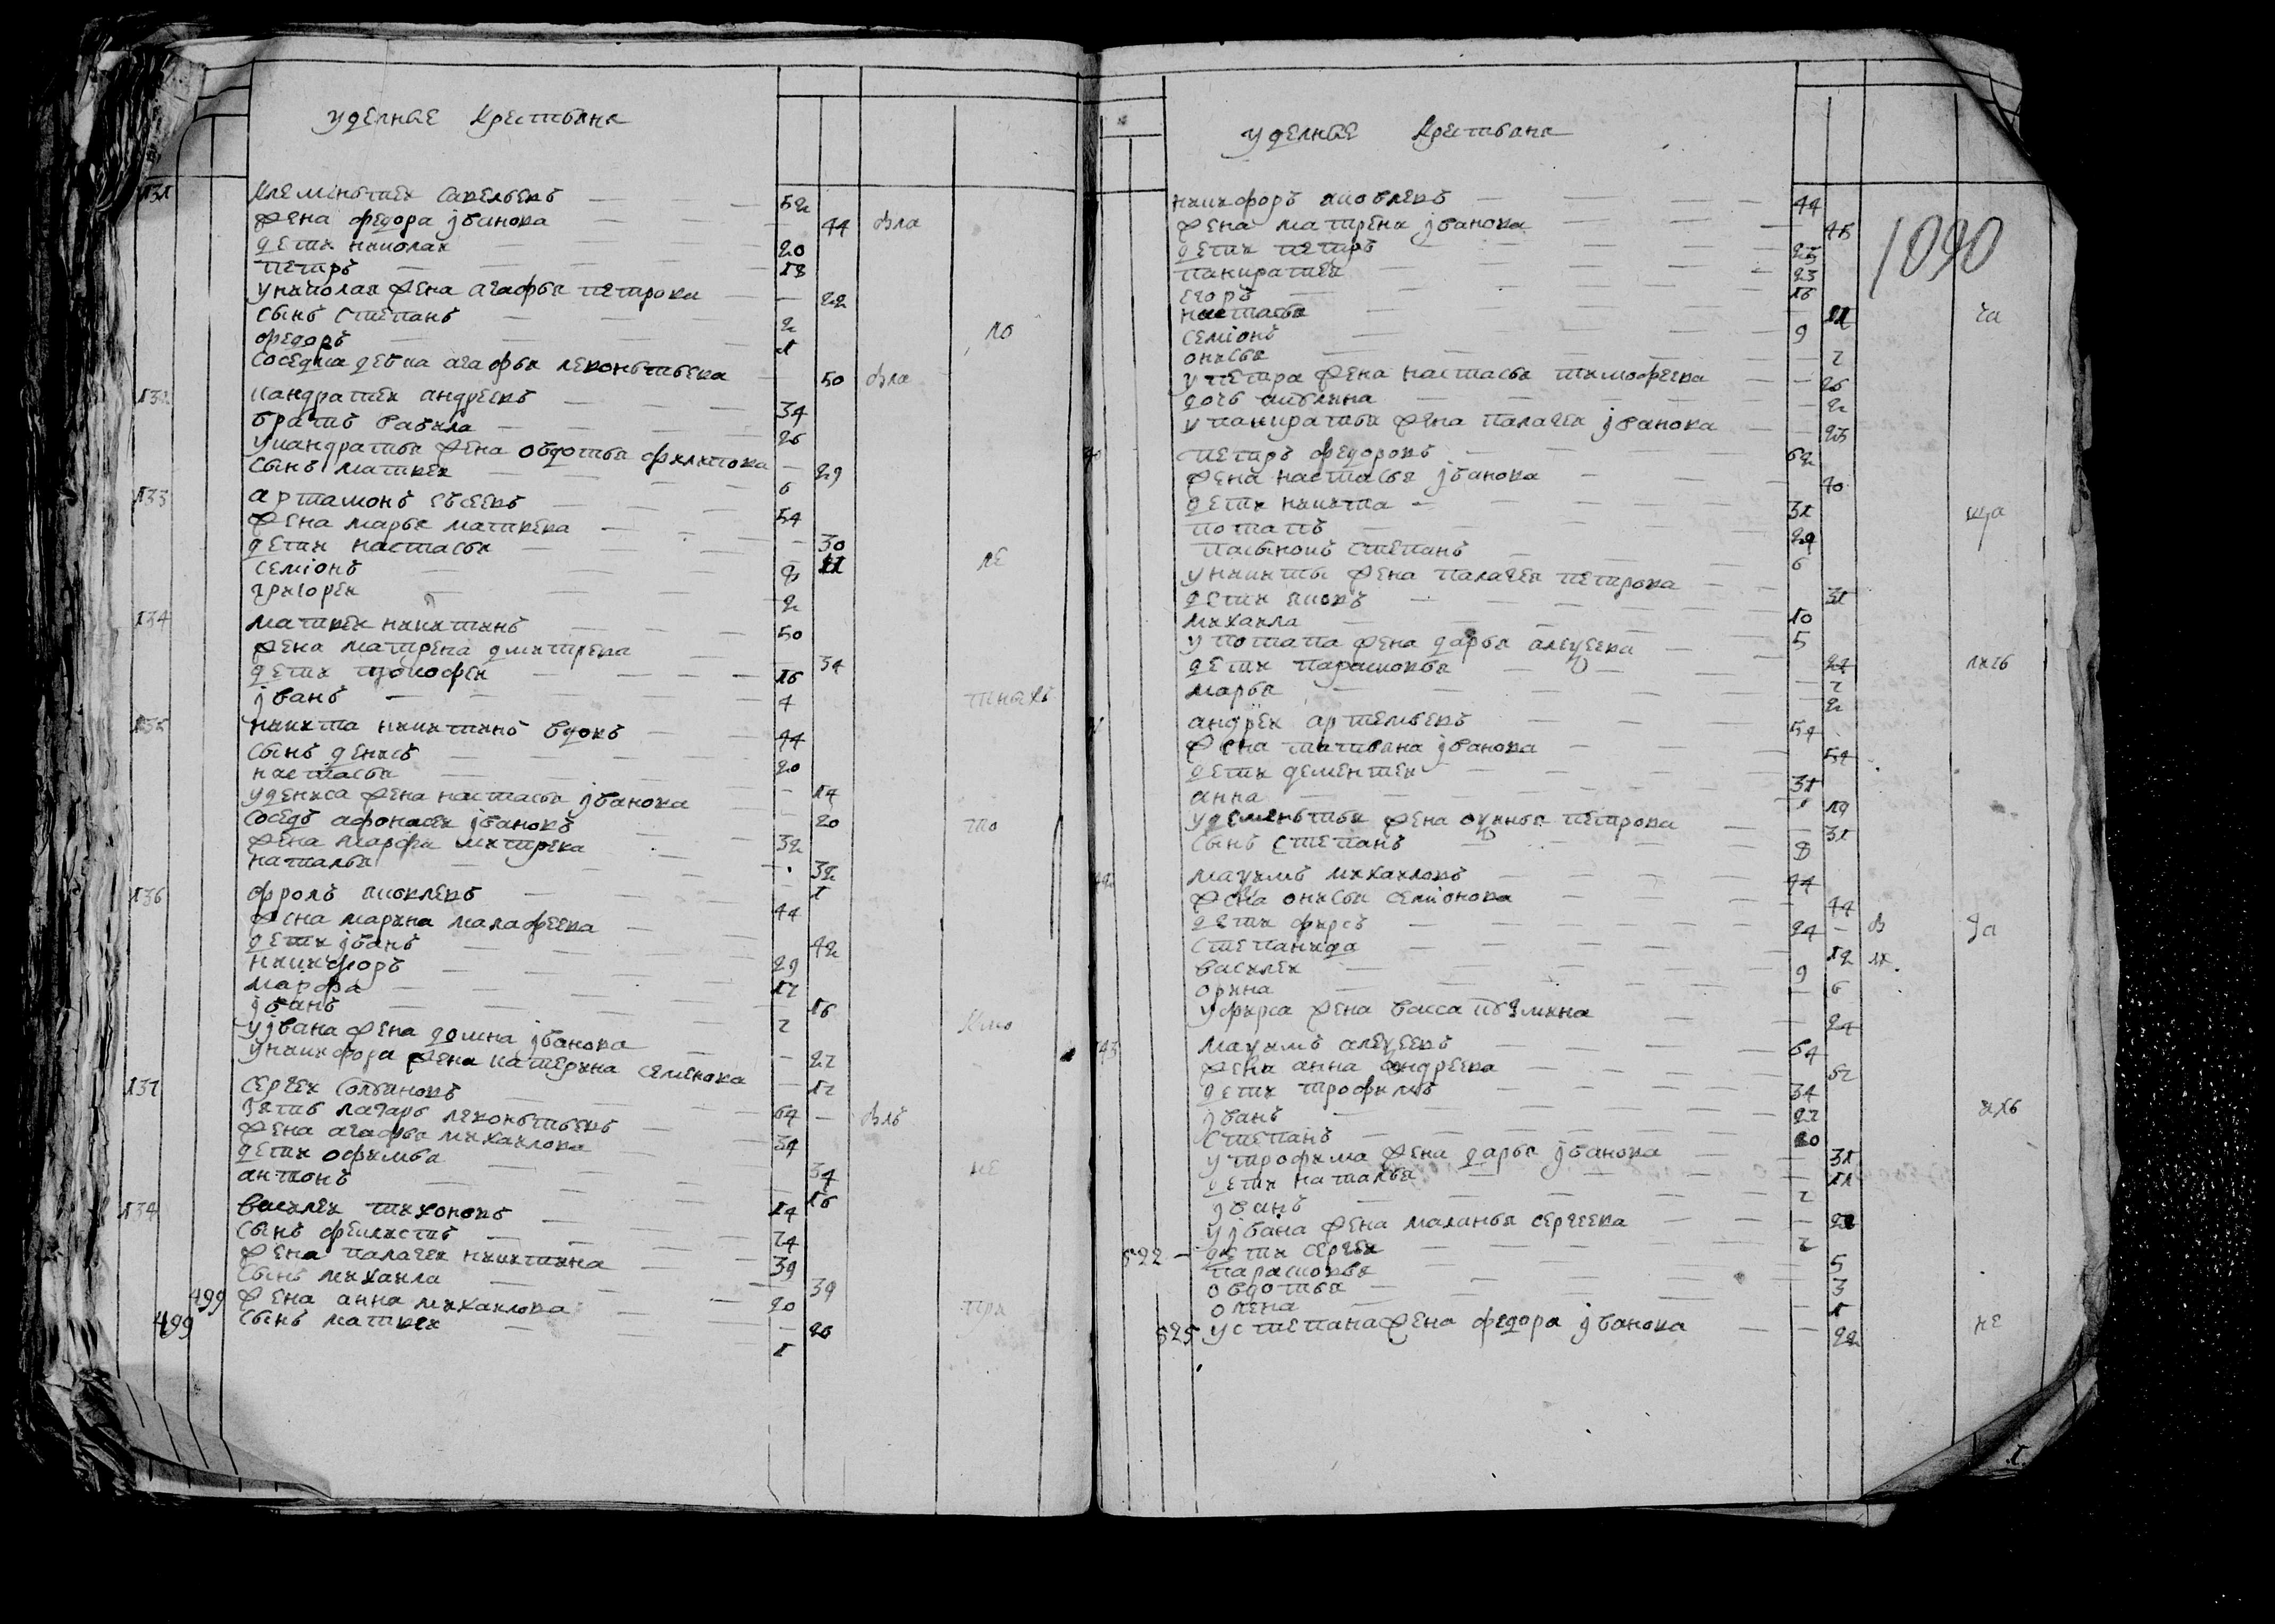 уделные крестьяне
131 клеминътеи савельевъ — 52
жена федора јванова — 44 Вла
дети николаи — 20
петръ — 18
униколая жена агафья петрова — 22
сынъ степанъ — 2
федоръ — 1 ло
соседка девка агафья леконьтьева — 50 Вла
132 кандратеи андреевъ — 34
братъ вавила — 26
укандратья жена овдотья филипова — 29
сынъ матвеи — 6
133 артамонъ евсеевъ — 54
жена марья матвеева — 30
дети настасья — 11 ле
семіонъ — 9
григореи — 2
134 матвеи никитинъ — 50
жена матрена дмитрева — 34
дети прокофеи — 16
јванъ — 4 тнаехъ
135 никита никитинъ вдовъ — 44
сынъ денисъ — 20
настасья — 14
удениса жена настасья јванова — 20 то
соседъ афонасеи јвановъ — 32
жена марфа митрева — 32
наталья — 1
136 фролъ яковлевъ — 44
жена марина малафеева — 42
дети јванъ — 29
никифоръ — 17
марфа — 16
јванъ — 7
ујвана жена домна јванова — 27 Кмо
уникифора жена катерина семенова — 17
137 сергеи солвановъ — 64 — Влъ
зять лазарь леконьтьевъ — 34
жена агафья михаилова — 34 не
дети офимья — 16
антонъ — 14
134 василеи тихоновъ — 74
сынъ феликстъ — 39
жена палагея никитина — 39
сынъ михаила — 20 при
499 жена анна михаилова — 20
499 сынъ матвеи — 1
уделные крестьяне
1090
никифоръ яковлевъ — 44
жена матрена јванова — 46
дети петръ — 25
панкратеи — 23
егоръ — 16
настасья — 11 ча
семіонъ — 9
онисья — 7
упетра жена настасья тимофеева — 26
дочь акулина — 2
упанкратья жена палагея јванова — 23
40 петръ федоровъ — 62
жена настасья јванова — 40
дети никита — 31 ща
потапъ — 29
пасынокъ степанъ — 6
уникиты жена палагея петрова — 31
дети яковъ — 10
михаила — 5
употапа жена дарья алеѯеева — 27 лихъ
дети парасковья — 7
марья — 2
андреи артемьевъ — 54
жена татьяна јванова — 54
дети дементеи — 31
анна — 19
удеменьтья жена оѯинья петрова — 31
сынъ степанъ — 8
142 маѯимъ михаиловъ — 44
жена онисья семіонова — 44
дети фирсъ — 24 — В за
степанида — 12 ли
василеи — 9
орина — 6
уфирса жена васса кузмина — 24
143 маѯимъ алеѯеевъ — 64
жена анна андреева — 57
дети трофимъ — 34
јванъ — 27 ихъ
степанъ — 20
утрофима жена дарья јванова — 31
дети наталья — 11
јванъ — 7
ујвана жена маланья сергеева — 21
522 — дети сергеи — 7
парасковья — 5
овдотья — 3
олена — 1
525 устепана жена федора јванова — 22 не